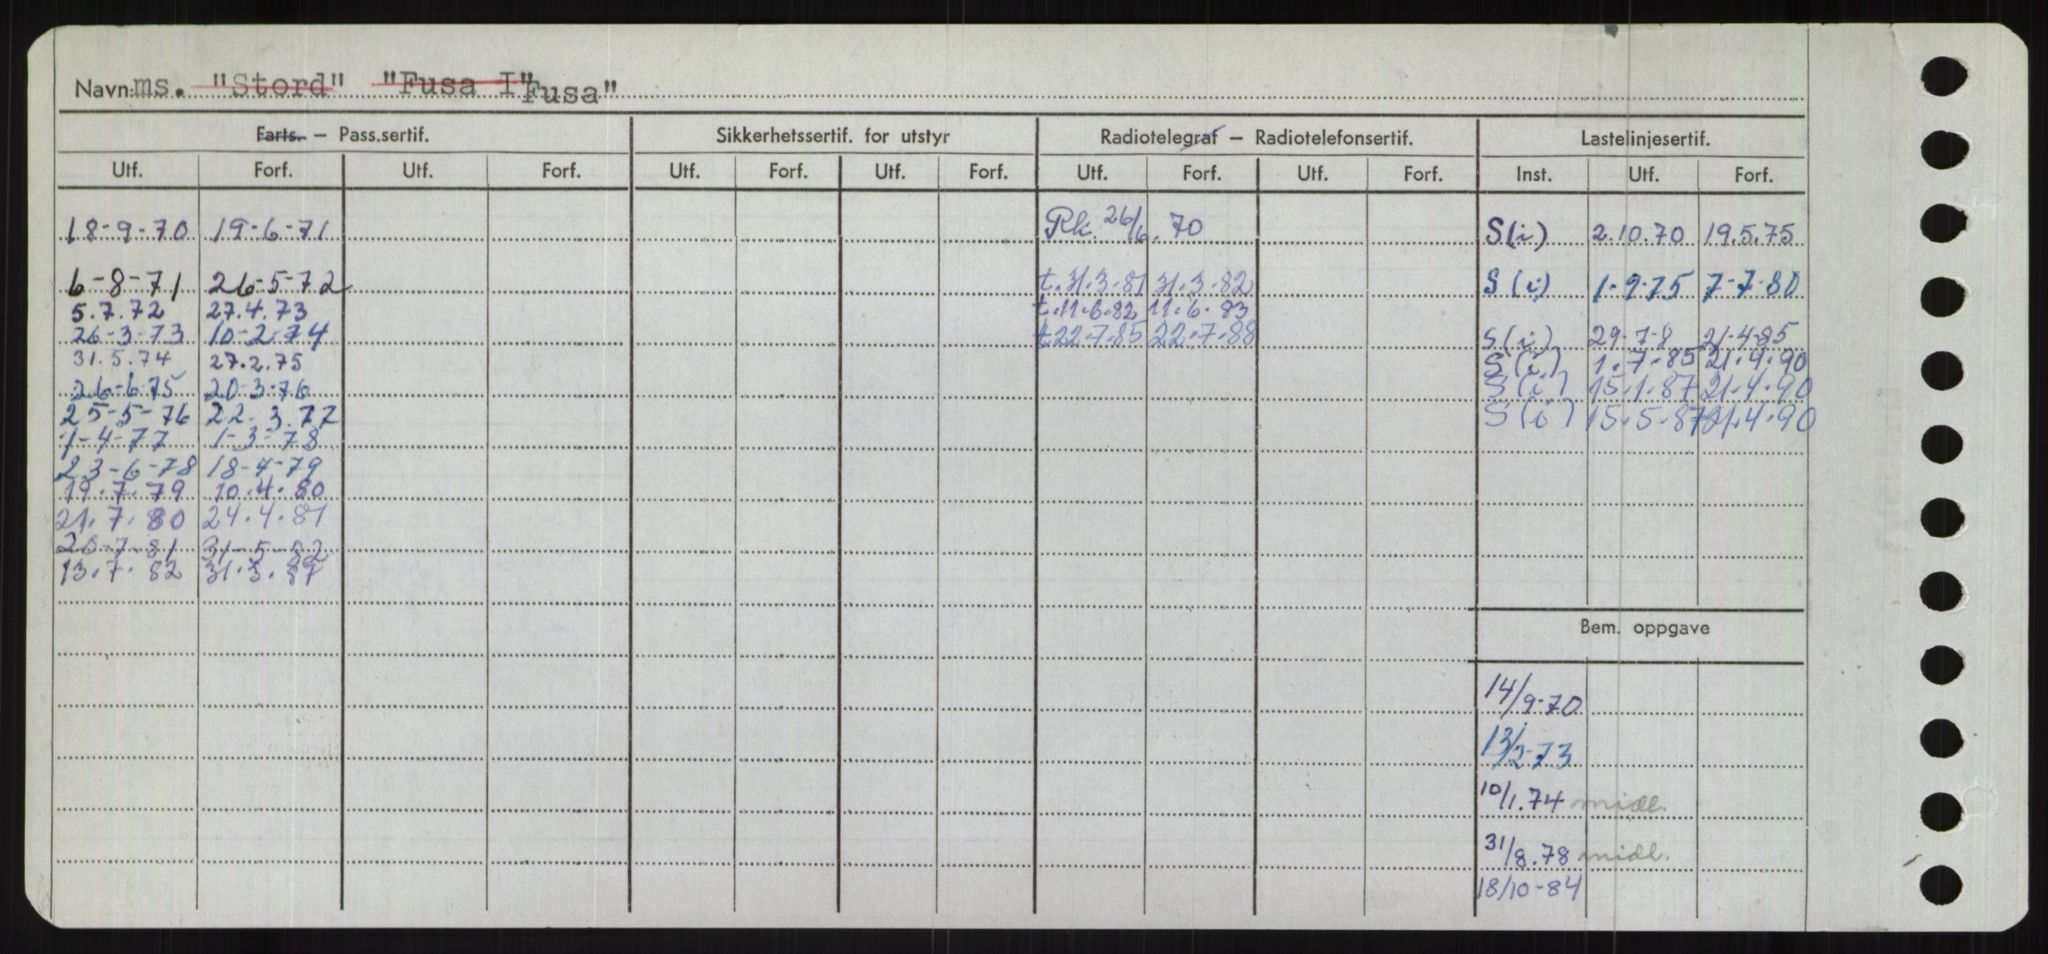 Navn: ms. "Stord" "Fusa I" Fusa"
Farts. – Pass.sertif. Sikkerhetssertif. for utstyr Radiotelegraf – Radiotelefonsertif. Lastelinjesertif.
Utf. Forf. Utf. Forf. Utf. Forf. Utf. Forf. Utf. Forf. Utf. Forf. Inst. Utf. Forf.
18-9-70 19-6-71 Rk. 26/6.70 S(i) 2.10.70 19.5.75
6-8-71 26-5-72 t.31.3.81 31.3.82 S(i) 1-9-75 7-7-80
5.7.72 27.4.73 t.11.6.82 11.6.83
26-3-73 10-2-74 t22.7.85 22.7.88 S(i) 29-7-8 21-4-85
31.5.74 27.2.75 S(i) 1.7.85 21.4.90
26-6-75 20-3-76 S(i) 15.1.87 21.4.90
25-5-76 22.3.77 S(i) 15.5.87 21.4.90
1-4-77 1-3-78
23-6-78 18-4-79
19.7.79 10.4.80
21.7.80 24.4.81
20-7-81 31-5-82
13.7.82 31.3.87
Bem. oppgave
14/9-70
13/2-73
10/1.74 midl.
31/8.78 midl.
18/10-84